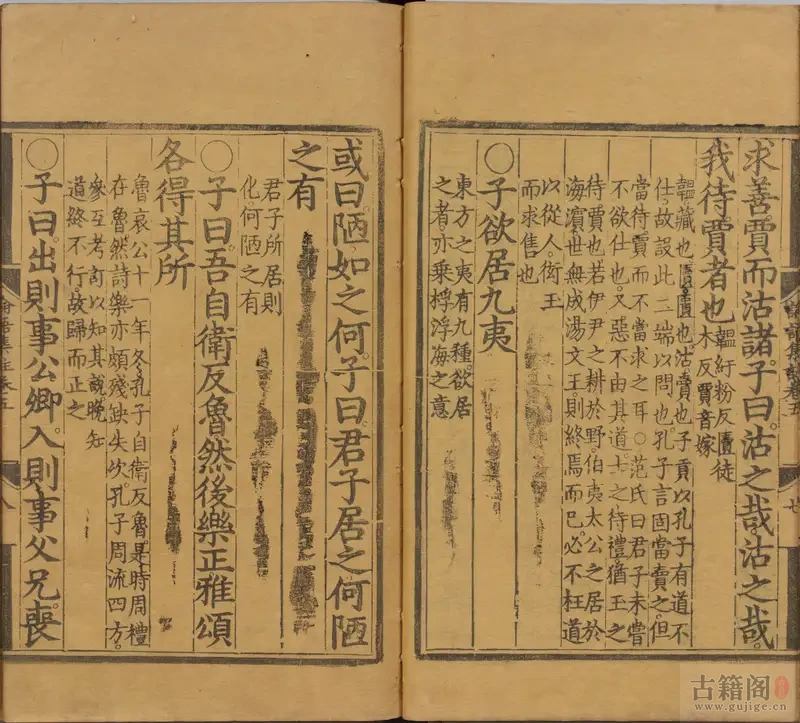 求善賈而沽諸子曰沽之哉沽之哉
我待賈者也
韞紆粉反匵徒
木反賈音嫁
韞藏也匵匱也沽賣也子貢以孔子有道不
仕故設此二端以問也孔子言固當賣之但
當待賈而不當求之耳○范氏曰君子未嘗
不欲仕也又惡不由其道士之待禮猶玉之
待賈也若伊尹之耕於野伯夷太公之居於
海濱世無成湯文王則終焉而已必不枉道
以從人衒玉
而求售也
○子欲居九夷
東方之夷有九種欲居
之者亦乘桴浮海之意
或曰陋如之何子曰君子居之何陋
之有
君子所居則
化何陋之有
○子曰吾自衛反魯然後樂正雅頌
各得其所
魯哀公十一年冬孔子自衛反魯是時周禮
在魯然詩樂亦頗殘缺失次孔子周流四方
參互考訂以知其說晚知
道終不行故歸而正之
○子曰出則事公卿入則事父兄喪
古籍阁
www.gujige.cn